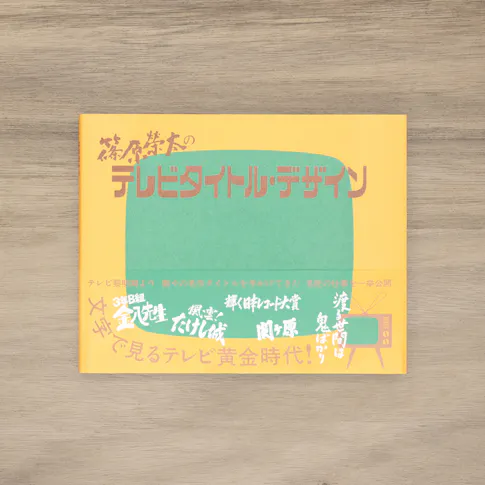 篠原榮太の
テレビタイトル・デザイン
3年B組
金八先生
風雲!
たけし城
輝く!日本レコード大賞
関ヶ原
渡る世間は
鬼ばかり
文字で見るテレビ黄金時代!